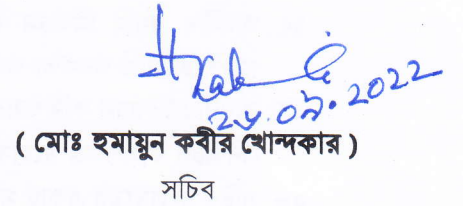 ২৮.০৯.2022
( মোঃ হুমায়ুন কবীর খোন্দকার )
সচিব